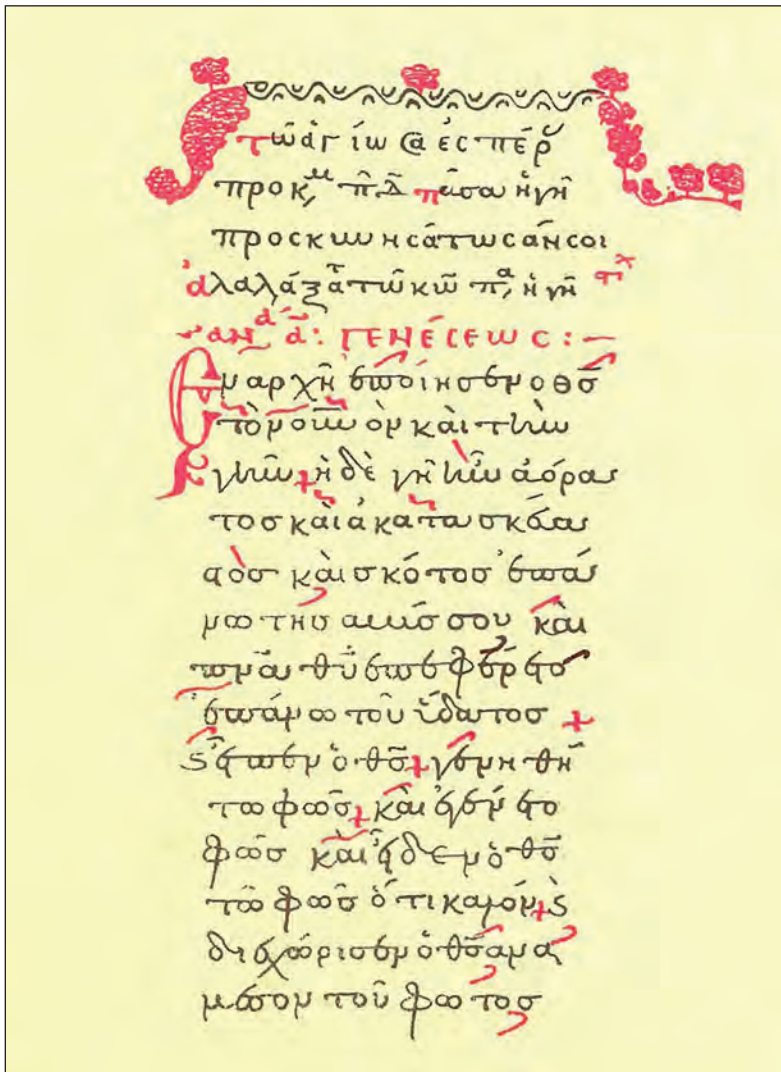 τῶ ἁγίω σα ἑσπέρ
προκ,μ π̂. δ̄ πᾶσα ἡ γῆ
προσκυνησάτωσάν σοι
ἀλαλάξατ τῶ κῶ πα, ἡ γῆ στχ
ἀναδ ᾱ: ΓΕΝΕСΕωС:—
Ἐν ἀρχῆ ἐποίησεν ὁ θσ̄
τὸν οὐνὸν καὶ τὴν
γῆν + ἡ δὲ γῆ ἦν ἀόρα
τοσ καὶ ἀκατασκεύα
στὸσ καὶ σκότοσ ἐπά
νω τῆσ ἀβύσσου καὶ
πνᾱ θῡ ἐπεφέρετο
ἐπάνω τοῦ ὕδατοσ +
ϛ εἶπεν ὁ θσ̄ + γενηθή
τω φῶσ + καὶ ἐγένετο
φῶσ καὶ εἶδεν ὁ θσ̄
τὸ φῶσ ὅτι καλόν + ϛ
διεχώρισεν ὁ θσ̄ ἀνα
μέσον τοῦ φωτόσ